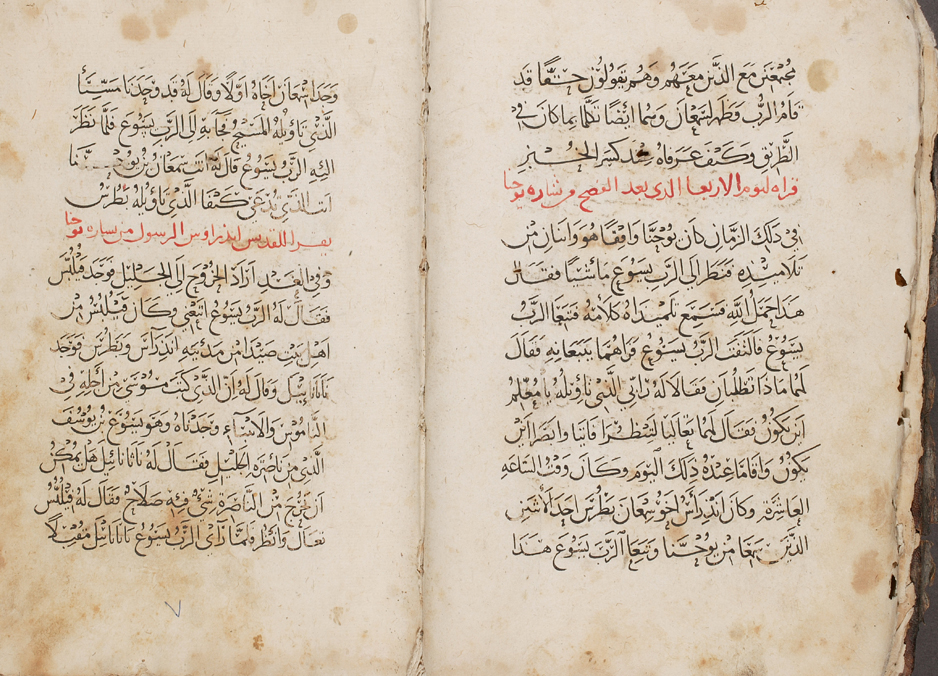 مجتمعين مع الذين معهم وهم يقولون حقًا قد
قام الرب وظهر لسمعان وهما ايضًا تكلما بما كان في
الطريق وكيف عرفاه عند كسر الخبز
قراه ليوم الاربعا الذى بعد الفصح من بشاره يوحنا
في ذلك الزمان كان يوحنا واقفًا هو واثنان من
تلاميذه فنظر الى الرب يسوع ماشيًا فقال
هذا حمل الله فسمع تلميذاه كلامه فتبعا الرب
يسوع فالتفت الرب يسوع فراهما يتبعانه فقال
لهما ماذا تطلبان فقالا له رابي الذي تاويله يا معلم
اين تكون فقال لهما تعاليا لتنظرا فاتيا وابصرا اين
يكون واقاما عنده ذلك اليوم وكان وقت الساعه
العاشرة وكان اندراس اخو سمعان بطرس احد الاثنين
الذين سمعا من يوحنا وتبعا الرب يسوع هذا
وجد اسمعان اخاه اولًا وقال له قد وجدنا مسيا
الذي تاويله المسيح فجا به الى الرب يسوع فلما نظر
اليه الرب يسوع قال له انت سمعان بن يوحنا
انت الذي تدعى كيفا الذي تاويله بطرس
يقرا للقديس اندراوس الرسول من بشاره يوحنا
وفي الغد اراد الخروج الى الجليل فوجد فيلبس
فقال له الرب يسوع اتبعني وكان فيلبس من
اهل بيت صيدا من مدينه اندراس وبطرس فوجد
ناثانائيل وقال له ان الذي كتب موسى من اجله في
الناموس والانبياء وجدناه وهو يسوع بن يوسف
الذي من ناصرة الجليل فقال له ناثانائيل هل يمكن
ان يخرج من الناصرة شي فيه صلاح فقال له فيلبس
تعال وانظر ولما راى الرب يسوع ناثانائيل مقبلا